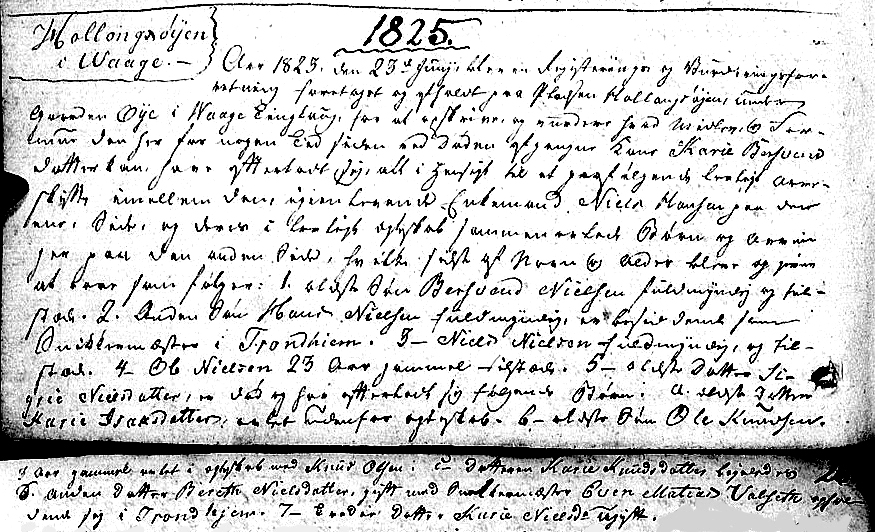 1825.
Hollongsøjen
i Waage. —
Aar 1825, den 23de Junj, blev en Registerings og Vurderingsfor-
retning foretaget og afholdt paa Pladsen Hollongsøjen, under
Gaarden Øye i Waage Tinglaug, for at opskrive og vurdere hvad Midler og For-
mue den her for nogen Tid siden ved Døden afgangne Kone Karie Bersvend
datter kan have efterladt sig, alt i Hensigt til et paafølgende lovligt Arve-
skifte imellem den igjenlevende Enkemand Niels Hansen paa den
ene Side, og deres i lovligt Egteskab sammen avlede Børn og Arvin
ger paa den anden Side, hvilke sidst af Navn og Alder bleve og
at være som følger: 1. ældste Søn Bersvend Nielsen fuldmyndig og til-
stæde. 2. Anden Søn Hans Nielsen fuldmyndig, er boesiddende som
Snikkermæster i Trondhiem. 3— Niels Nielsen fuldmyndig, og til-
stæde. 4— Ole Nielsen 23 Aar gammel tilstæde. 5— ældste Datter Si-
grie Nielsdatter, er død og har efterladt sig følgende Børn. a. ældste Datter
Karie Isaksdatter, avlet udenfor Egteskab. b— ældste Søn Ole Knudsen.
Aar gammel avlet i Egteskab med Knud Olsen. c— Datteren Karie Knudsdatter
6. anden Datter Bereth Nielsdatter, gift med Snikkermæster Even Matias Valseth
dende sig i Trondhjem. 7— Tredie Datter Karie Nielsd ugift.